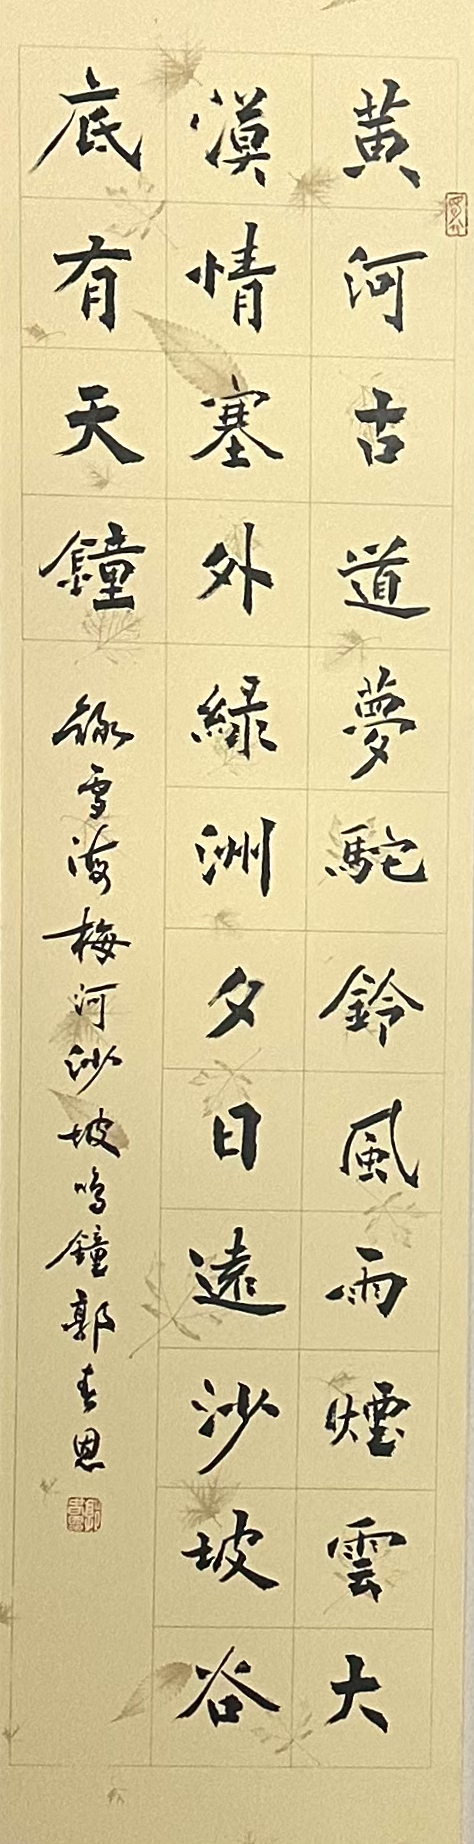 黃河古道夢駝鈴風雨煙雲大
漠情塞外綠洲夕日遠沙坡谷
底有天鐘
錄雪海梅河沙坡鳴鐘郭春恩